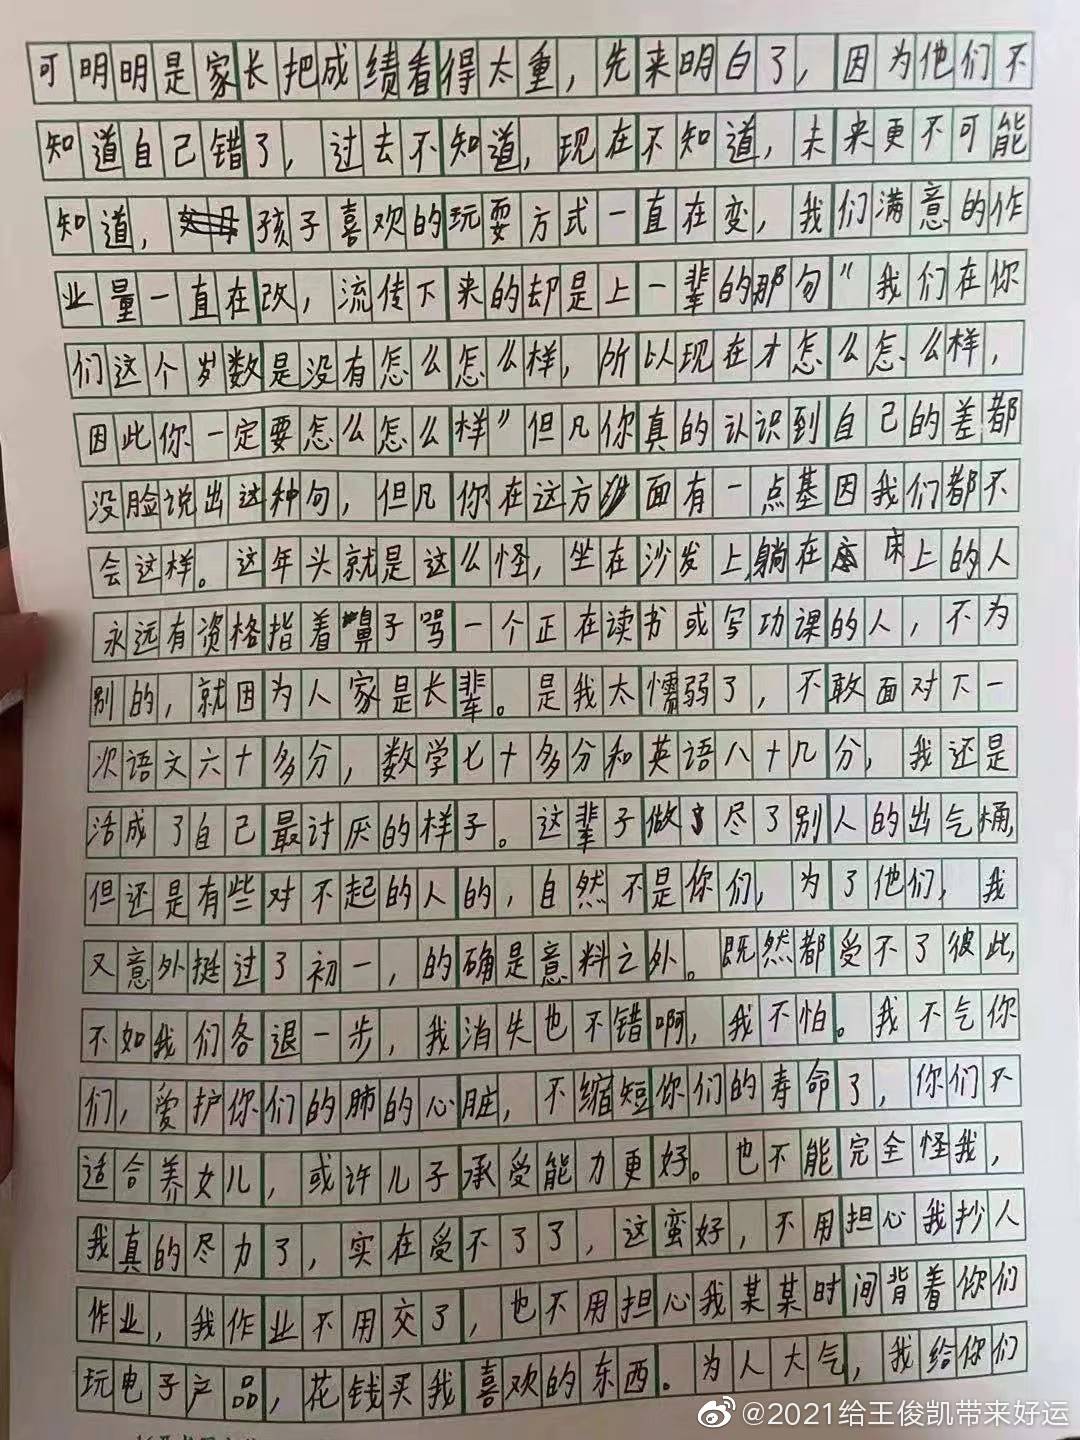 可明明是家长把成绩看得太重，先来明白了，因为他们不
知道自己错了，过去不知道，现在不知道，未来更不可能
知道，孩子喜欢的玩耍方式一直在变，我们满意的作
业量一直在改，流传下来的却是上一辈的那句“我们在你
们这个岁数是没有怎么怎么样，所以现在才怎么怎么样，
因此你一定要怎么怎么样”但凡你真的认识到自己的差都
没脸说出这种句，但凡你在这方面有一点基因我们都不
会这样。这年头就是这么怪，坐在沙发上，躺在床上的人
永远有资格指着鼻子骂一个正在读书或写功课的人，不为
别的，就因为人家是长辈。是我太懦弱了，不敢面对下一
次语文六十多分，数学七十多分和英语八十几分，我还是
活成了自己最讨厌的样子。这辈子做尽了别人的出气桶，
但还是有些对不起的人的，自然不是你们，为了他们，我
又意外挺过了初一，的确是意料之外。既然都受不了彼此，
不如我们各退一步，我消失也不错啊，我不怕。我不气你
们，爱护你们的肺的心脏，不缩短你们的寿命了，你们不
适合养女儿，或许儿子承受能力更好。也不能完全怪我，
我真的尽力了，实在受不了了，这蛮好，不用担心我抄人
作业，我作业不用交了，也不用担心我某某时间背着你们
玩电子产品，花钱买我喜欢的东西。为人大气，我给你们
@2021给王俊凯带来好运